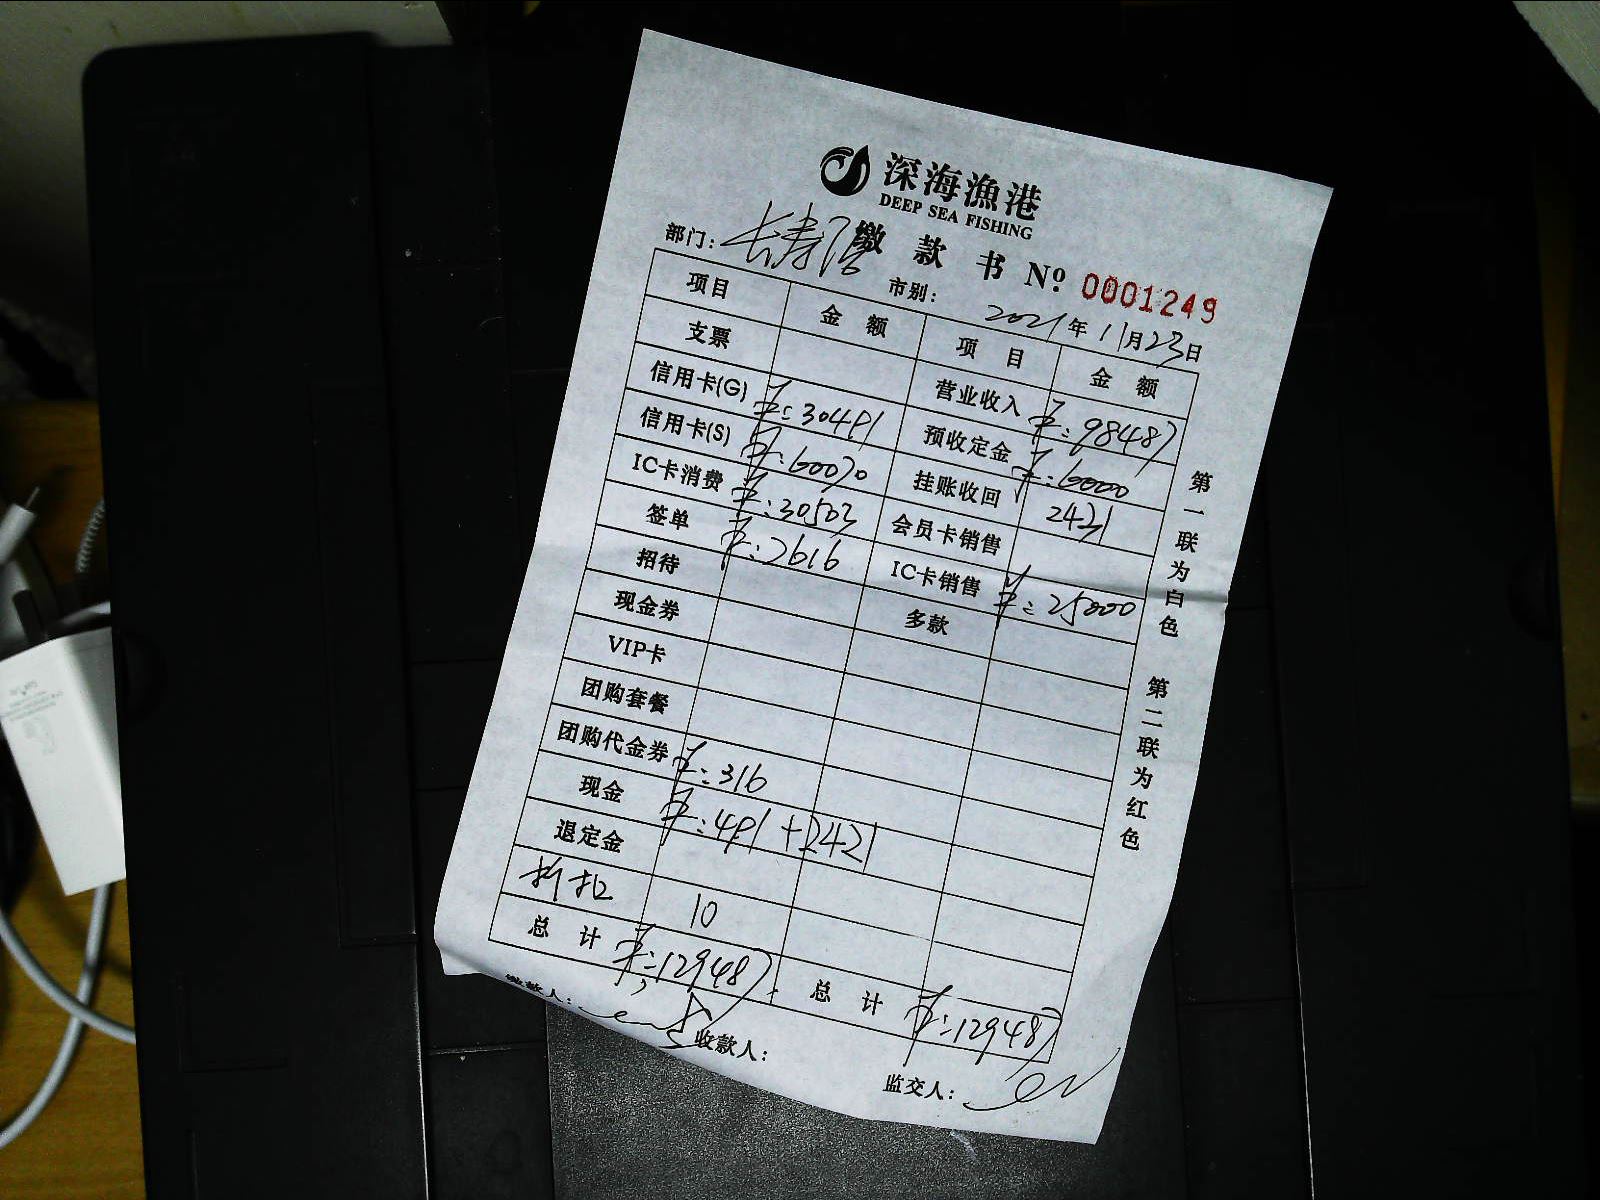 深海漁港
DEEP SEA FISHING
缴款书 Nº: 0001249
部门: 长寿 市别: 2021年11月23日
项目 金额 项目 金额
支票 营业收入 ¥:98487
信用卡(G) ¥:30491 预收定金 ¥:6000
信用卡(S) ¥:60070 挂账收回 2431
IC卡消费 ¥:30503 会员卡销售
签单 ¥:2616 IC卡销售 ¥:25000
招待 多款
现金券
VIP卡
团购套餐
团购代金券 ¥:316
现金 ¥:491+2421
退定金
折扣 10
总计 ¥:129487 总计 ¥:129487
缴款人: 收款人: 监交人:
第一联为白色 第二联为红色